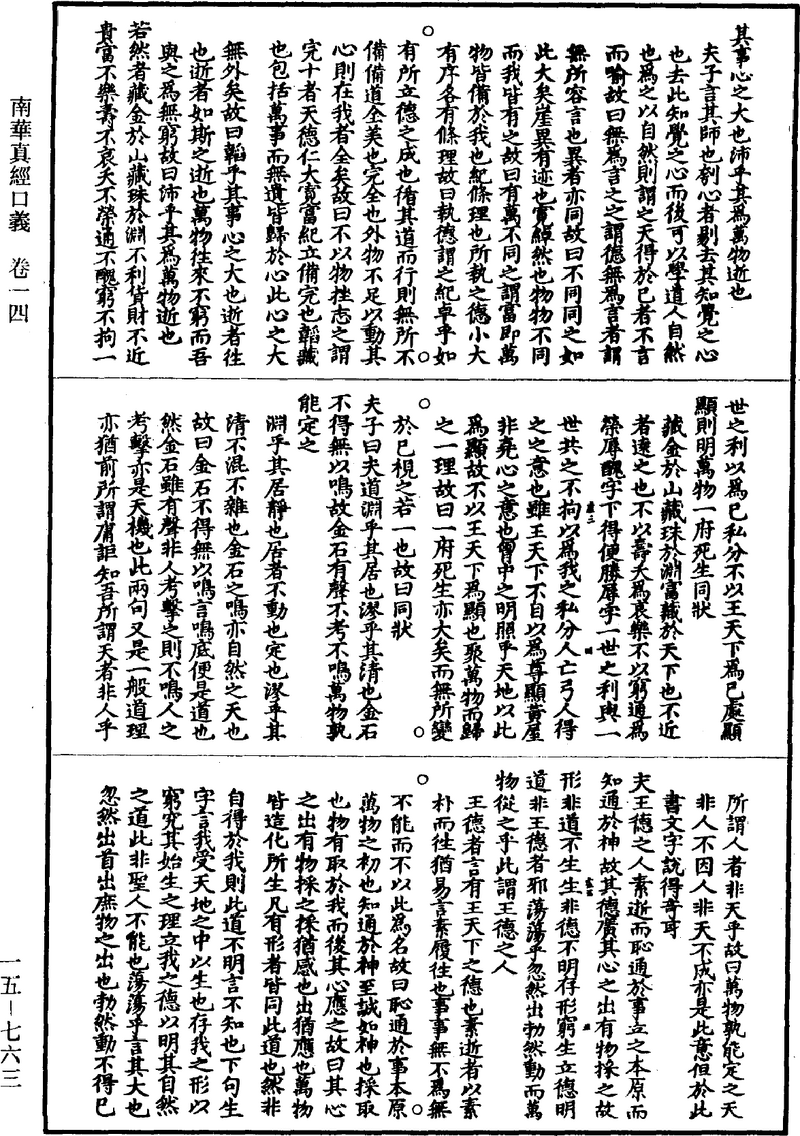 南華真經口義　卷一四
其事心之大也沛乎其爲萬物逝也
夫子言其師也刳心者剔去其知覺之心
也去此知覺之心而後可以學道人自然
也爲之以自然則謂之天得於已者不言
而喻故曰無爲言之之謂德無爲言者謂
無所容言也異者亦同故曰不同同之如
此大矣崖異有迹也寬綽然也物物不同
而我皆有之故曰有萬不同之謂富即萬
物皆備於我也紀條理也所執之德小大
有序各有條理故曰執德謂之紀卓乎如
有所立德之成也循其道而行則無所不
備備道全美也完全也外物不足以動其
心則在我者全矣故曰不以物挫志之謂
完十者天德仁大寬富紀立備完也韜藏
也包括萬事而無遺皆歸於心此心之大
無外矣故曰韜乎其事心之大也逝者往
也逝者如斯之逝也萬物往來不窮而吾
與之爲無窮故曰沛乎其爲萬物逝也
若然者藏金於山藏珠於淵不利貨財不近
貴富不樂壽不哀夭不榮通不醜窮不拘一
世之利以爲已私分不以王天下爲已處顯
顯則明萬物一府死生同狀
藏金於山藏珠於淵富藏於天下也不近
者遠之也不以壽夭爲哀樂不以窮通爲
榮辱醜字下得便勝辱字一世之利與一
世共之不拘以爲我之私分人亡弓人得
之之意也雖王天下不自以爲尊顯黃屋
非堯心之意也胷中之明照乎天地以此
爲顯故不以王天下爲顯也聚萬物而歸
之一理故曰一府死生亦大矣而無所變
於已視之若一也故曰同狀
夫子曰夫道淵乎其居也漻乎其清也金石
不得無以鳴故金石有聲不考不鳴萬物孰
能定之
淵乎其居靜也居者不動也定也漻乎其
清不混不雜也金石之鳴亦自然之天也
故曰金石不得無以鳴言鳴底便是道也
然金石雖有聲非人考擊之則不鳴人之
考擊亦是天機也此兩句又是一般道理
亦猶前所謂庸詎知吾所謂天者非人乎
所謂人者非天乎故曰萬物孰能定之天
非人不因人非天不成亦是此意但於此
書文字說得奇耳
夫王德之人素逝而恥通於事立之本原而
知通於神故其德廣其心之出有物採之故
形非道不生生非德不明存形窮生立德明
道非王德者邪蕩蕩乎忽然出勃然動而萬
物從之乎此謂王德之人
王德者言有王天下之德也素逝者以素
朴而往猶易言素履往也事事無不爲無
不能而不以此爲名故曰恥通於事本原
萬物之初也知通於神至誠如神也採取
也物有取於我而後其心應之故曰其心
之出有物採之採猶感也出猶應也萬物
皆造化所生凡有形者皆同此道也然非
自得於我則此道不明言不知也下句生
字言我受天地之中以生也存我之形以
窮究其始生之理立我之德以明其自然
之道此非聖人不能也蕩蕩乎言其大也
忽然出首出庶物之出也勃然動不得已
一五—七六三